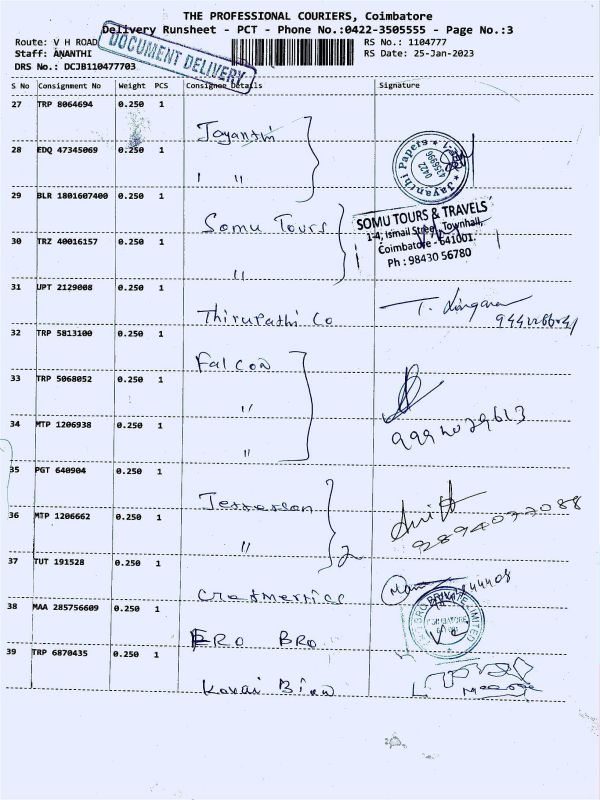 THE PROFESSIONAL COURIERS, Coimbatore
Delivery Runsheet - PCT - Phone No.:0422-3505555 - Page No.:3
Route: V H ROAD
Staff: ANANTHI
DRS No.: DCJB110477703
DOCUMENT DELIVERY
RS No.: 1104777
RS Date: 25-Jan-2023
S No Consignment No Weight PCS Consignee Details Signature
27 TRP 8064694 0.250 1
Jayanthi
28 EDQ 47345069 0.250 1
Jayanthi Papers
0422
4356996
"
29 BLR 1801607400 0.250 1
Somu Tours
SOMU TOURS & TRAVELS
1-4, Ismail Street, Townhall,
Coimbatore - 641001.
Ph : 98430 56780
30 TRZ 40016157 0.250 1
"
31 UPT 2129008 0.250 1
Thirupathi Co
32 TRP 5813100 0.250 1
Falcon
33 TRP 5068052 0.250 1
"
34 MTP 1206938 0.250 1
"
35 PGT 640904 0.250 1
Jefferson
36 MTP 1206662 0.250 1
" 2
9894032088
37 TUT 191528 0.250 1
38 MAA 285756609 0.250 1
BRO PRIVATE LIMITED
BRO
39 TRP 6870435 0.250 1
Kovai